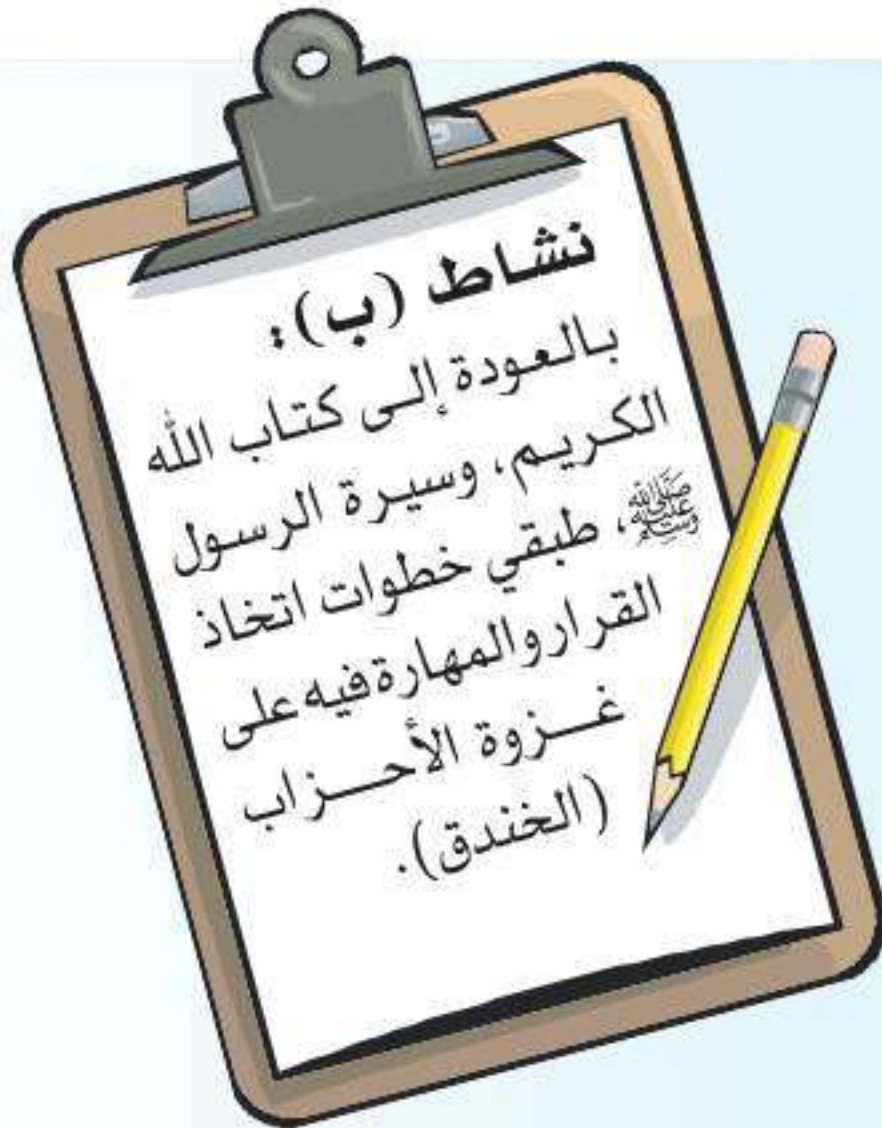 نشاط (ب):
بالعودة إلى كتاب الله
الكريم، وسيرة الرسول
ﷺ، طبقي خطوات اتخاذ
القرار والمهارة فيه على
غزوة الأحزاب
(الخندق).